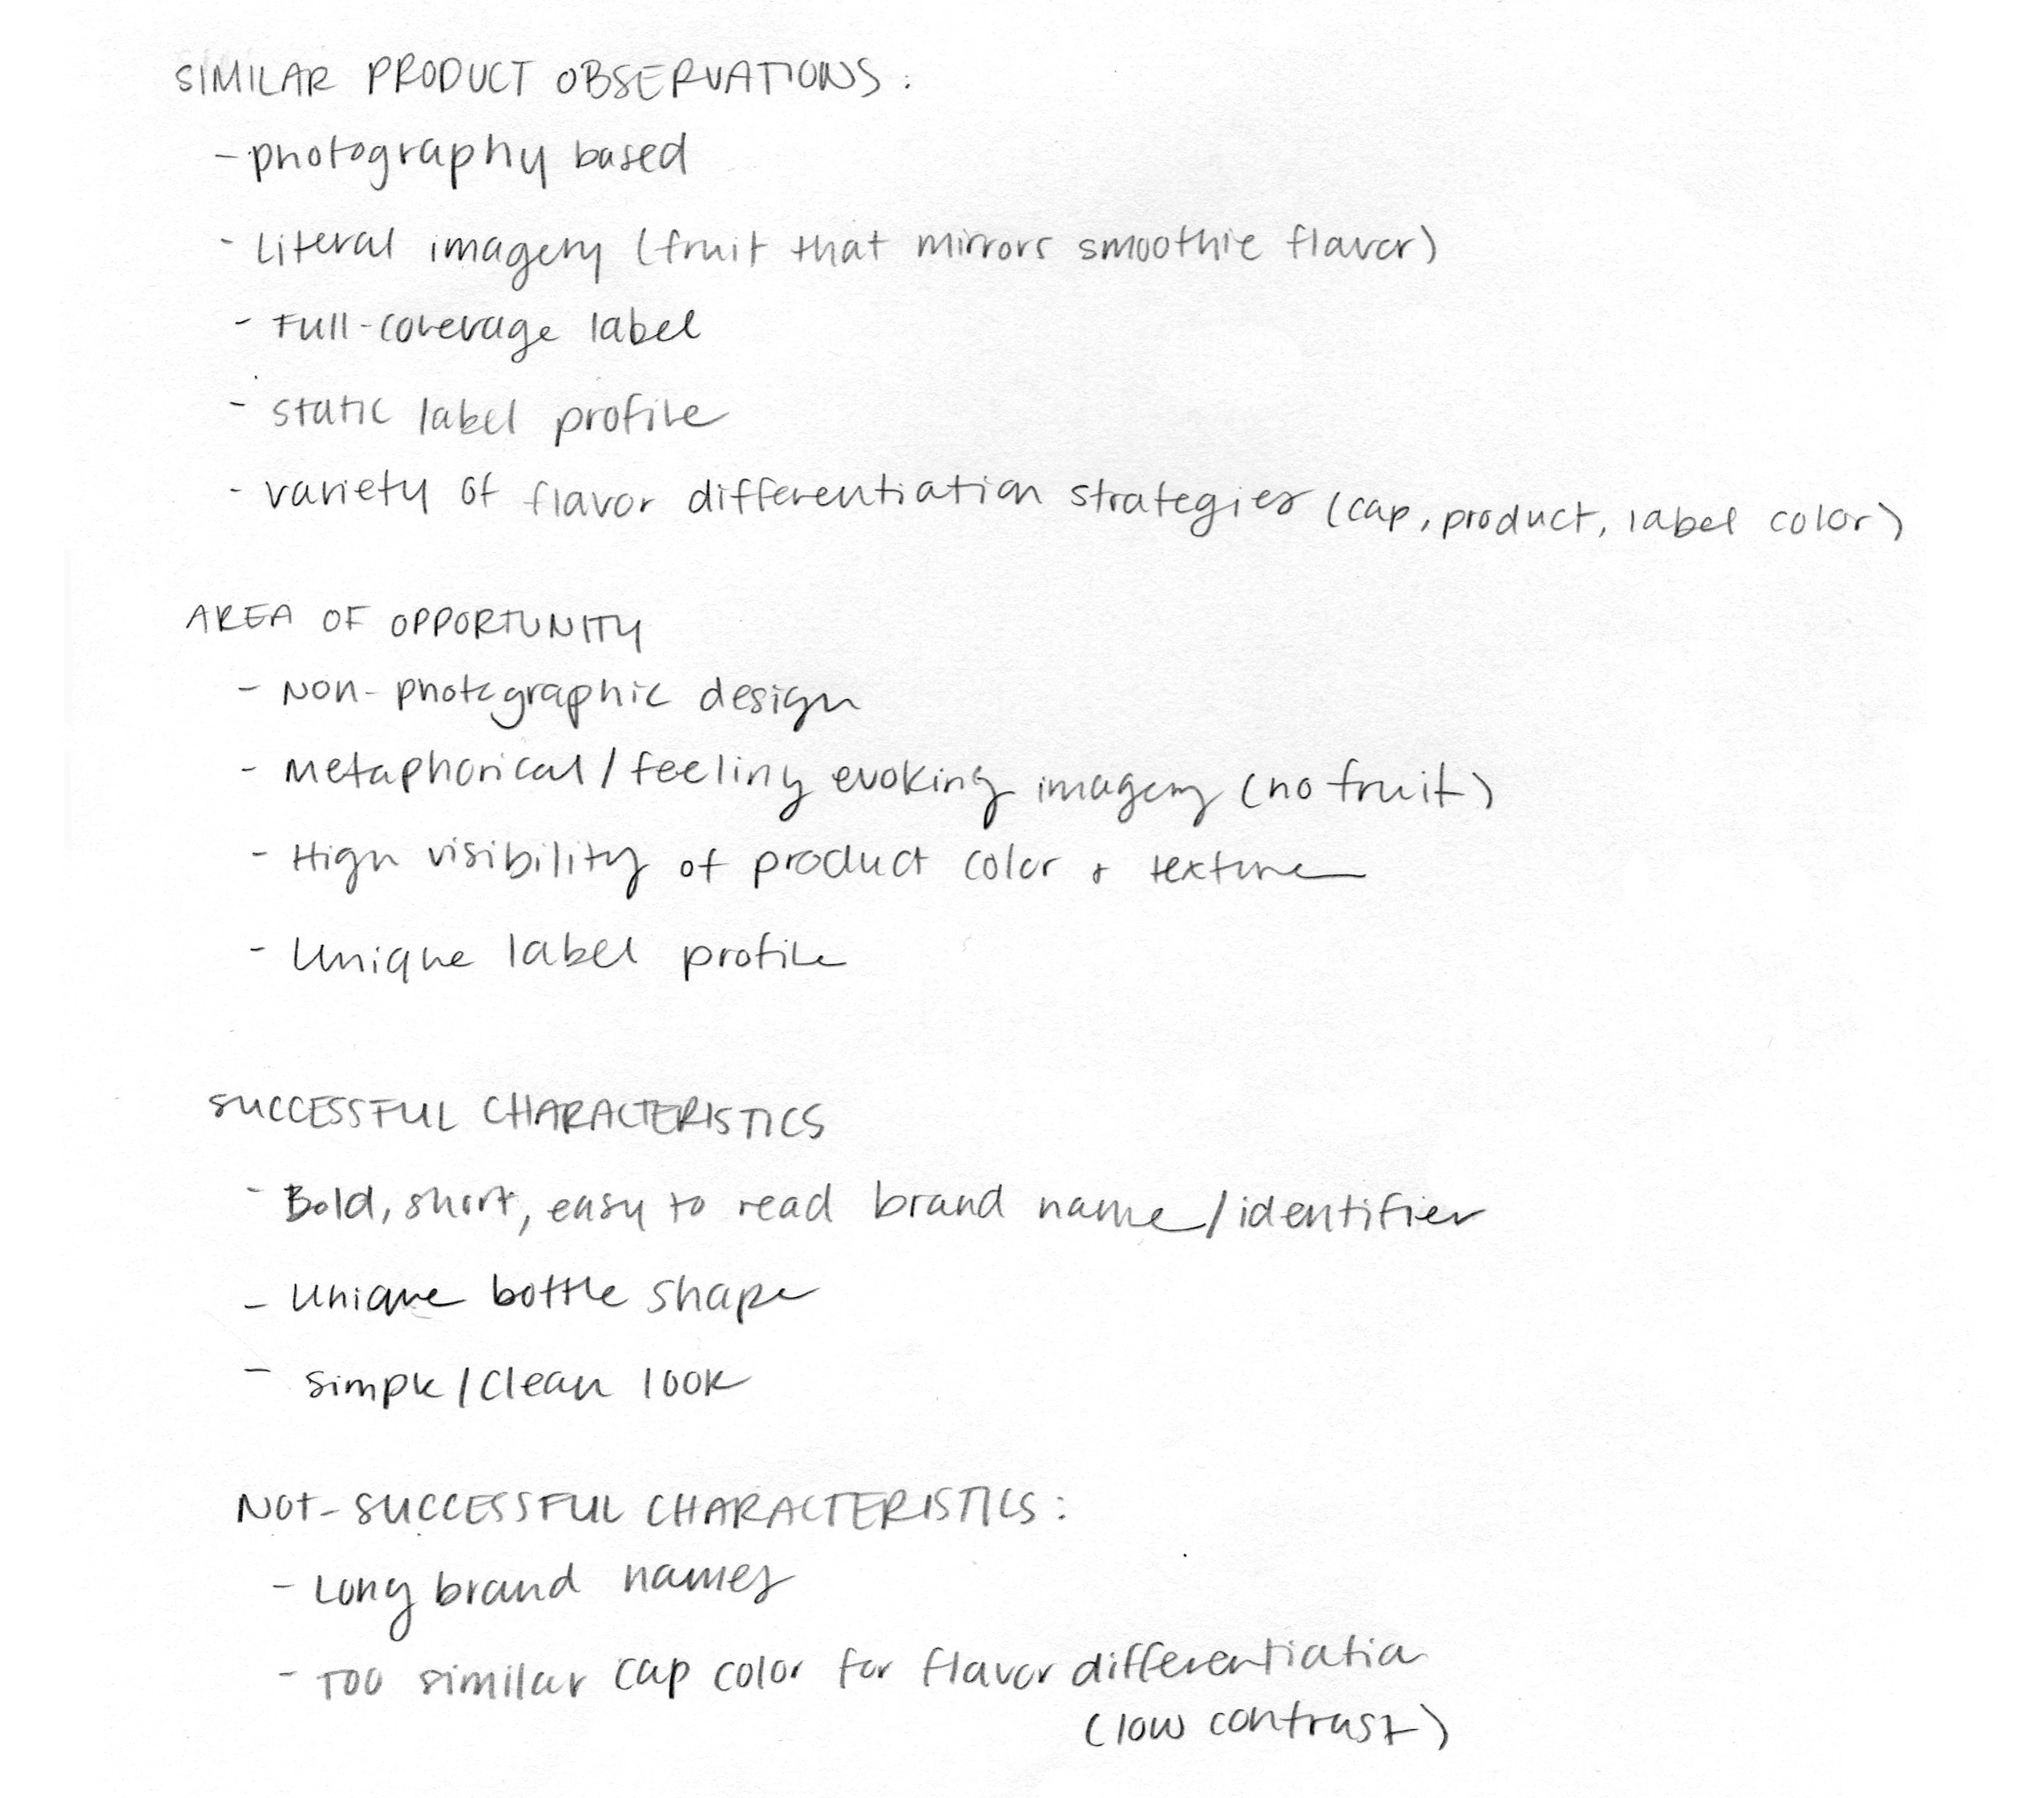 SIMILAR PRODUCT OBSERVATIONS:
- photography based
- Literal imagery (fruit that mirrors smoothie flavor)
- Full-coverage label
- static label profile
- variety of flavor differentiation strategies (cap, product, label color)
AREA OF OPPORTUNITY
- Non-photographic design
- Metaphorical/feeling evoking imagery (no fruit)
- High visibility of product color + texture
- Unique label profile
SUCCESSFUL CHARACTERISTICS
- Bold, short, easy to read brand name/identifier
- Unique bottle shape
- simple/clean look
NOT-SUCCESSFUL CHARACTERISTICS:
- Long brand names
- Too similar cap color for flavor differentiation
(low contrast)